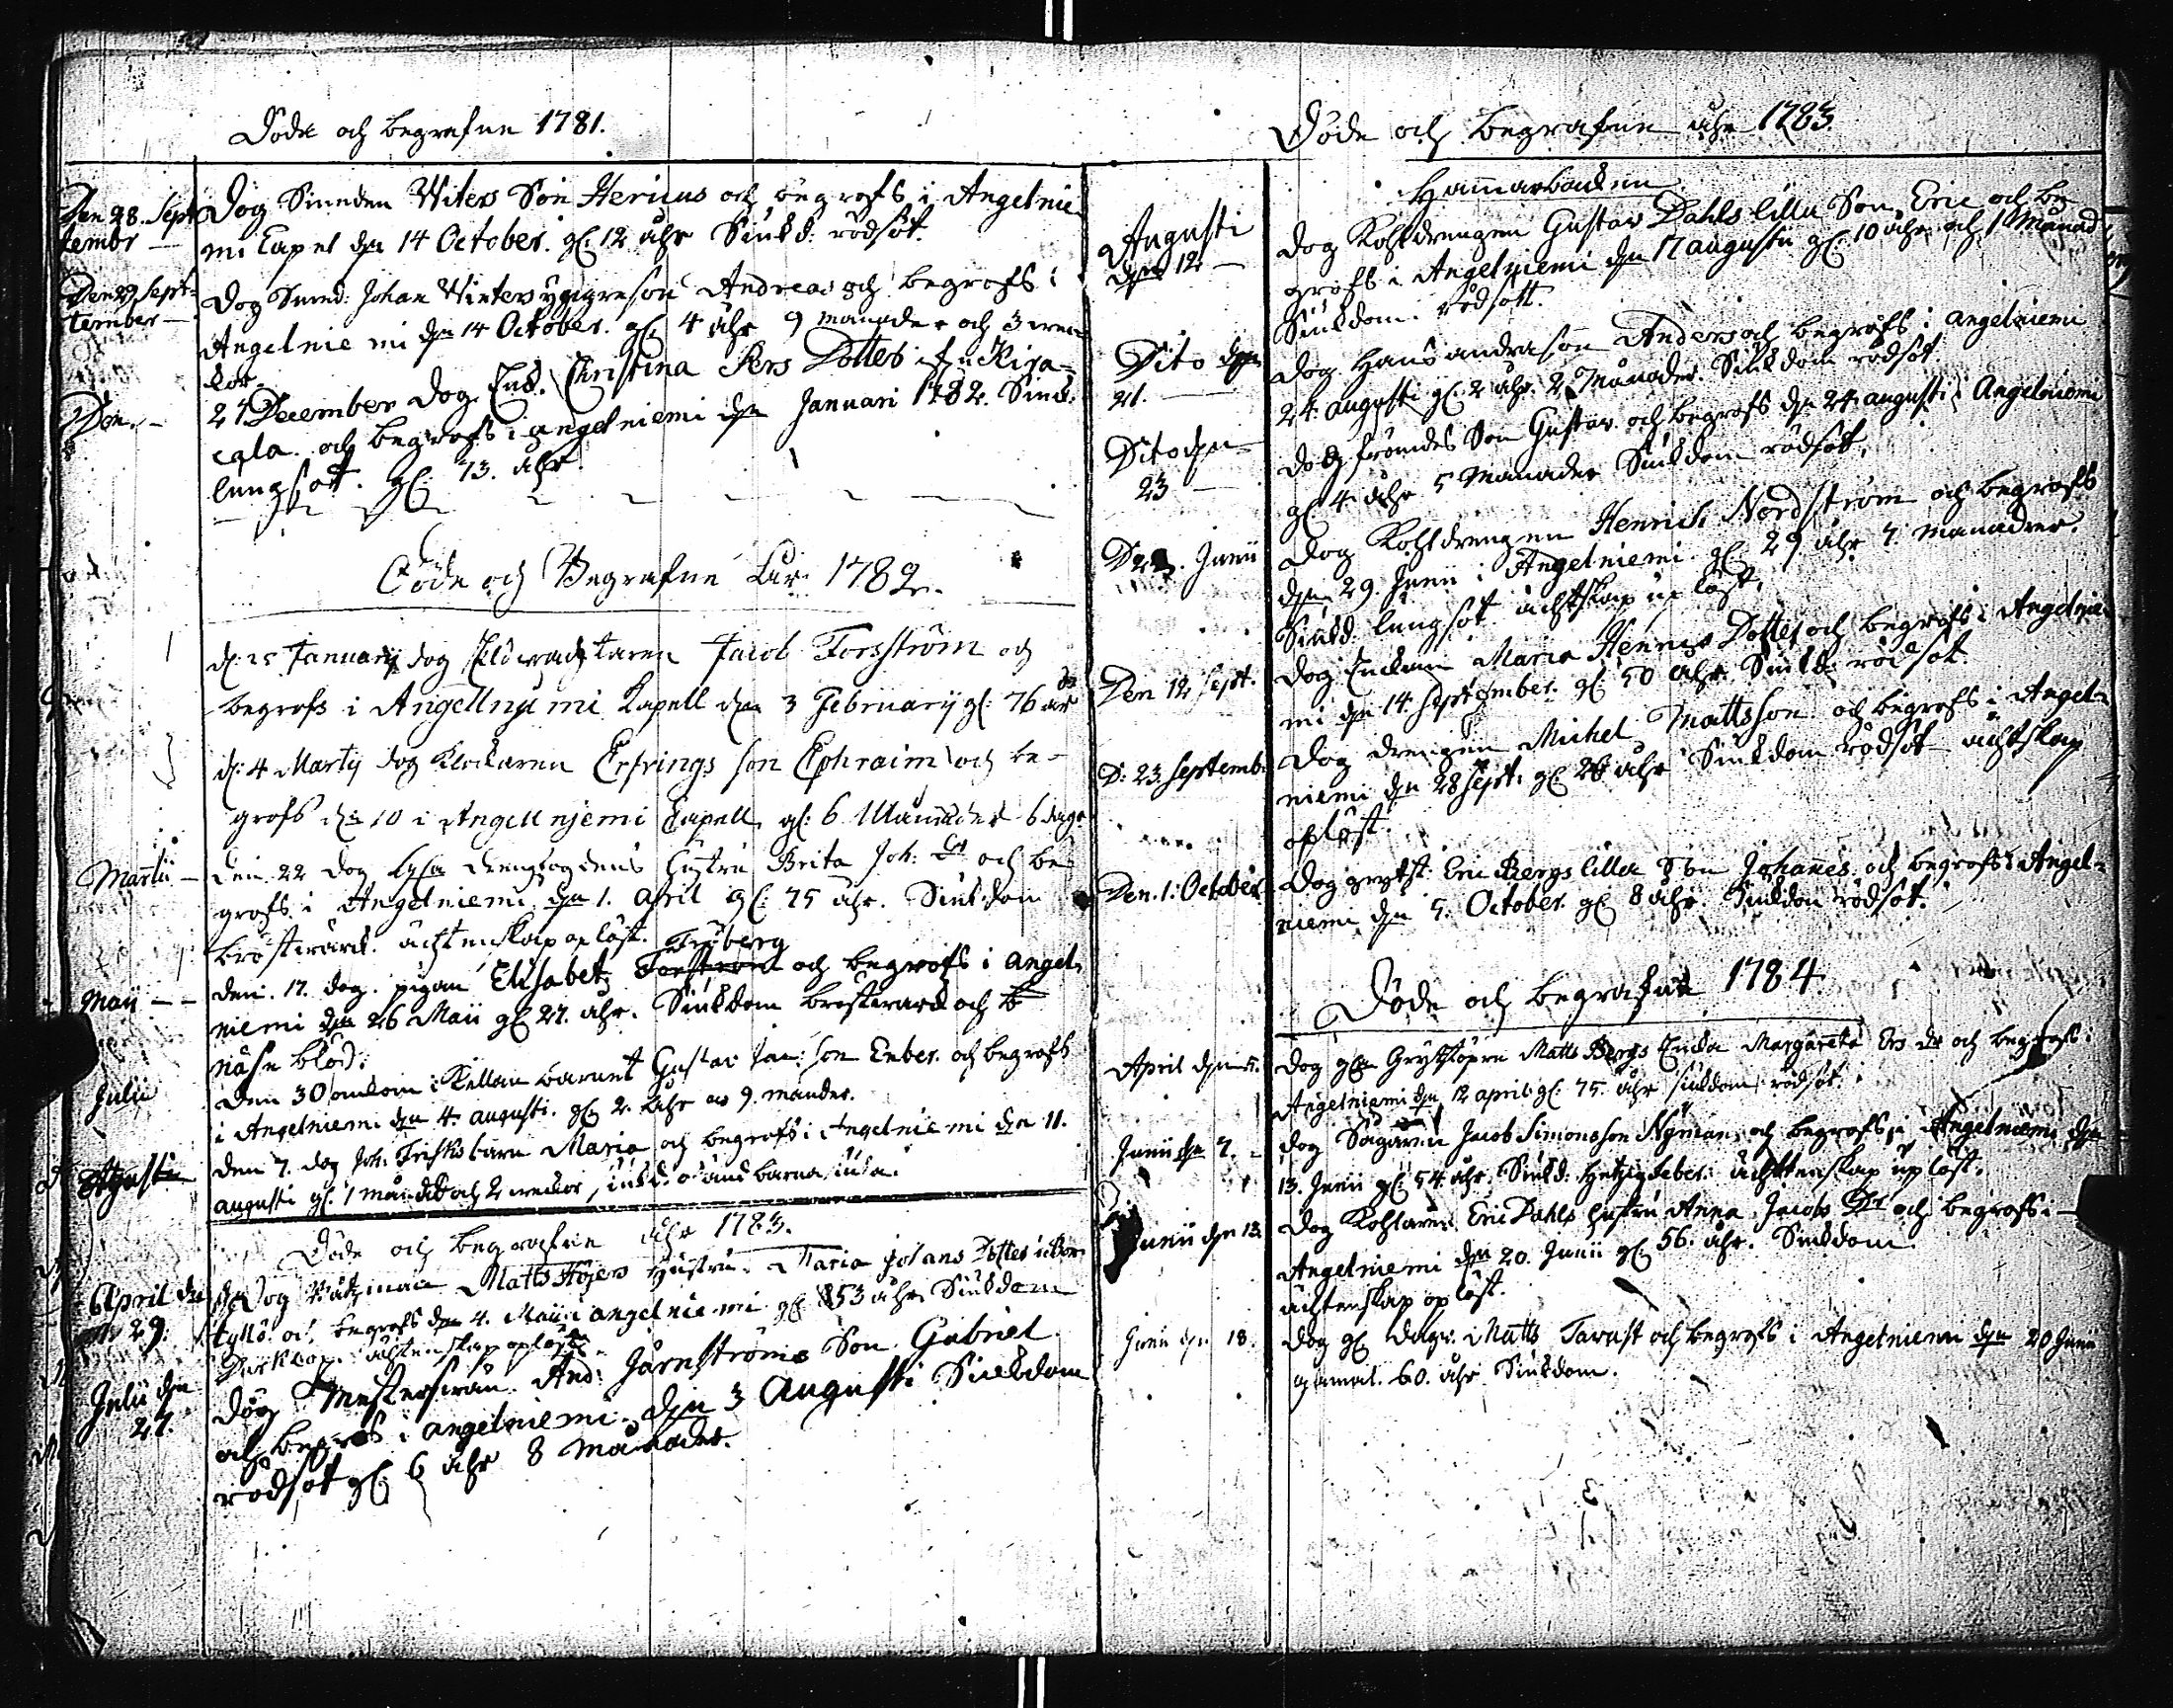 Döde och begrafne 1781.
Den 28. Sept
tembr —
Dog Smeden Witers Son Hericus och begrofs i Angelnie
mi Capel den 14 October. gl: 12 åhr Siukd: rödsot.
Den 29 Sept=
tember —
Dog Smed: Johan Winters yngre son Andreas och begrofs i
Angelnie mi den 14 October. gl: 4 åhr 9 månader och 3 wec
kor.
Den. —
24 December Dog Enk. Christina Pers Dotter ifrån Kira=
cala och begrofs i angelniemi den Januari 1782. Siukd.
lungsot. gl: 73. åhr.
Döde och Begrafne åhr 1782.
d: 25 January dog Jacob Forsström och
begrofs i Angellnjemi Kapell den 3 February gl: 76 år
d: 4 Marty dog Klockaren Erfvings son Ephraim och be-
grofs d: 10 i Angellnjemi Capell gl: 6 Månader 6 dagr
Martii —
den 22 dog drengfogdens hustru Brita Joh: Dr och be
grofs i Angelniemi den 1. April gl: 75 åhr. Siukdom
bröstwärck. ächtenskap oplöst.
Maii — —
den. 17. dog. pigan Elisabet Fröberg och begrofs i angel,
niemi den 26 Maii gl: 27. åhr. Siukdom bröstwerck och
näse blod.
Julii
den 30 barnet Gustav son Enber. och begrofs
i Angelniemi den 4. augusti. gl: 2. åhr 9. månader.
Agusti
den 7. dog Joh. Frisks barn Maria och begrofs i Angelniemi den 11.
augusti gl: 1 månad och 2 weckor, siukd. barna siuka.
Döde och begrafne åhr 1783.
April den
29.
Dog Matts Höjers hustru. Maria Johans Dotter
och begrofs den 4. Maii i angelniemi gl: 53 åhr Siukdom
ächtenskap oplöst.
Julii den
27.
Dog Mestersven And: Järnströms Son Gabriel
och begrofs i angelniemi den 3 Augusti Siukdom
rödsot gl: 6 åhr 8 månader.
Döde och begrafne åhr 1783
Hamarbacken
Augusti
den 12 —
Dog Kohldrengen Gustav Dahls lilla Son Eric och be
grofs i Angelniemi den 17 augusti gl: 10 åhr och 1 Månad
Siukdom rödsott.
Dito den
21. —
Dog Hans andrason Anders och begrofs i angelniemi
24 augusti gl: 2 åhr. 2 Månader. Siukdom rödsot
Dito den
23 —
Dog Son Gustav och begrofs den 24 augusti i Angelniemi
gl: 4 åhr 5 Månader Siukdom rödsot.
D . Junii
Dog Kohldrengen Henrich Nordström och begrofs
den 29. Junii i Angelniemi gl: 29 åhr 7. månader.
Siukd. lungsot ächtskap up löst.
Den 12 Sept.
Dog Enkan Maria Henrics Dotter och begrofs i Angelnie
mi den 14. September. gl: 50 åhr. Siukd. rödsot
D: 23 Septemb.
Dog drengen Michel Mattsson och begrofs i Angel=
niemi den 28 Sept. gl: åhr Siukdom rödsot ächtskap
oplöst.
Den. 1. October
Dog Eric Bergs lilla Son Johanes och begrofs Angel=
niemi den 5. October. gl: 8 åhr. Siukdom rödsot.
Döde och begrafne 1784
April den 5.
Dog Matts Bergs Enka Margareta Ers Dr och begrofs i
Angelniemi den 12 april gl: 75. åhr siukdom rödsot.
Junii den 7.
Dog Sågaren Jacob Simonsson Nyman och begrofs i Angelniemi den
13. Junii gl: 54 åhr. Siukd: hetzig feber. ächttenskap up löst.
Junii den 13
Dog Kohlaren Eric Dahls hustru Anna Jacobs Dr och begrofs i —
Angelniemi den 20. Junii gl: 56. åhr. Siukdom
ächtenskap op löst.
Junii den 18.
Dog gl: Matts Tavast och begrofs i Angelniemi den 20 Junii
gamal. 60. åhr Siukdom.